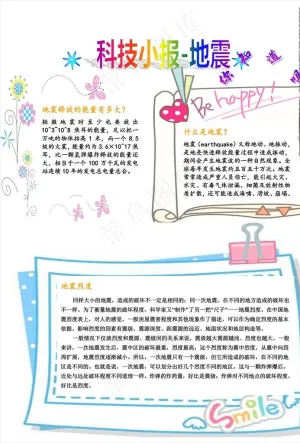 科技小报-地震
你知道吗
Be happy!
地震释放的能量有多大?
轻微地震时至少也要放出
10^3~10^8 焦耳的能量，足以把一
万吨的物体抬高 1 米，而一个 8.5
级的大震，能量约为 3.6×10^17 焦
耳，比一颗氢弹爆炸释放的能量还
大，相当于一个 100 万千瓦的发电
站连续 10 年的发电总电量总合。
什么是地震？
地震（earthquake）又称地动、地振动，
是地壳快速释放能量过程中造成振动，
期间会产生地震波的一种自然现象。全
球每年发生地震约五百五十万次。地震
常常造成严重人员伤亡，能引起火灾、
水灾、有毒气体泄漏、细菌及放射性物
质扩散，还可能造成海啸、滑坡、崩塌、
地震烈度
同样大小的地震，造成的破坏不一定是相同的；同一次地震，在不同的地方造成的破坏也
不一样。为了衡量地震的破坏程度，科学家又“制作”了另一把“尺子”——地震烈度。在中国地
震烈度表上，对人的感觉、一般房屋震害程度和其他现象作了描述，可以作为确定烈度的基本
依据。影响烈度的因素有震级、震源深度、距震源的远近、地面状况和地层构造等。
一般情况下仅就烈度和震源、震级间的关系来说，震级越大震源越浅、烈度也越大。一般
来讲，一次地震发生后，震中区的破坏最重，烈度最高；这个烈度称为震中烈度。从震中向四
周扩展，地震烈度逐渐减小。所以，一次地震只有一个震级，但它所造成的破坏，在不同的地
区是不同的。也就是说，一次地震，可以划分出好几个烈度不同的地区。这与一颗炸弹爆后，
近处与远处破坏程度不同道理一样。炸弹的炸药量，好比是震级；炸弹对不同地点的破坏程度，
好比是烈度。
Smile